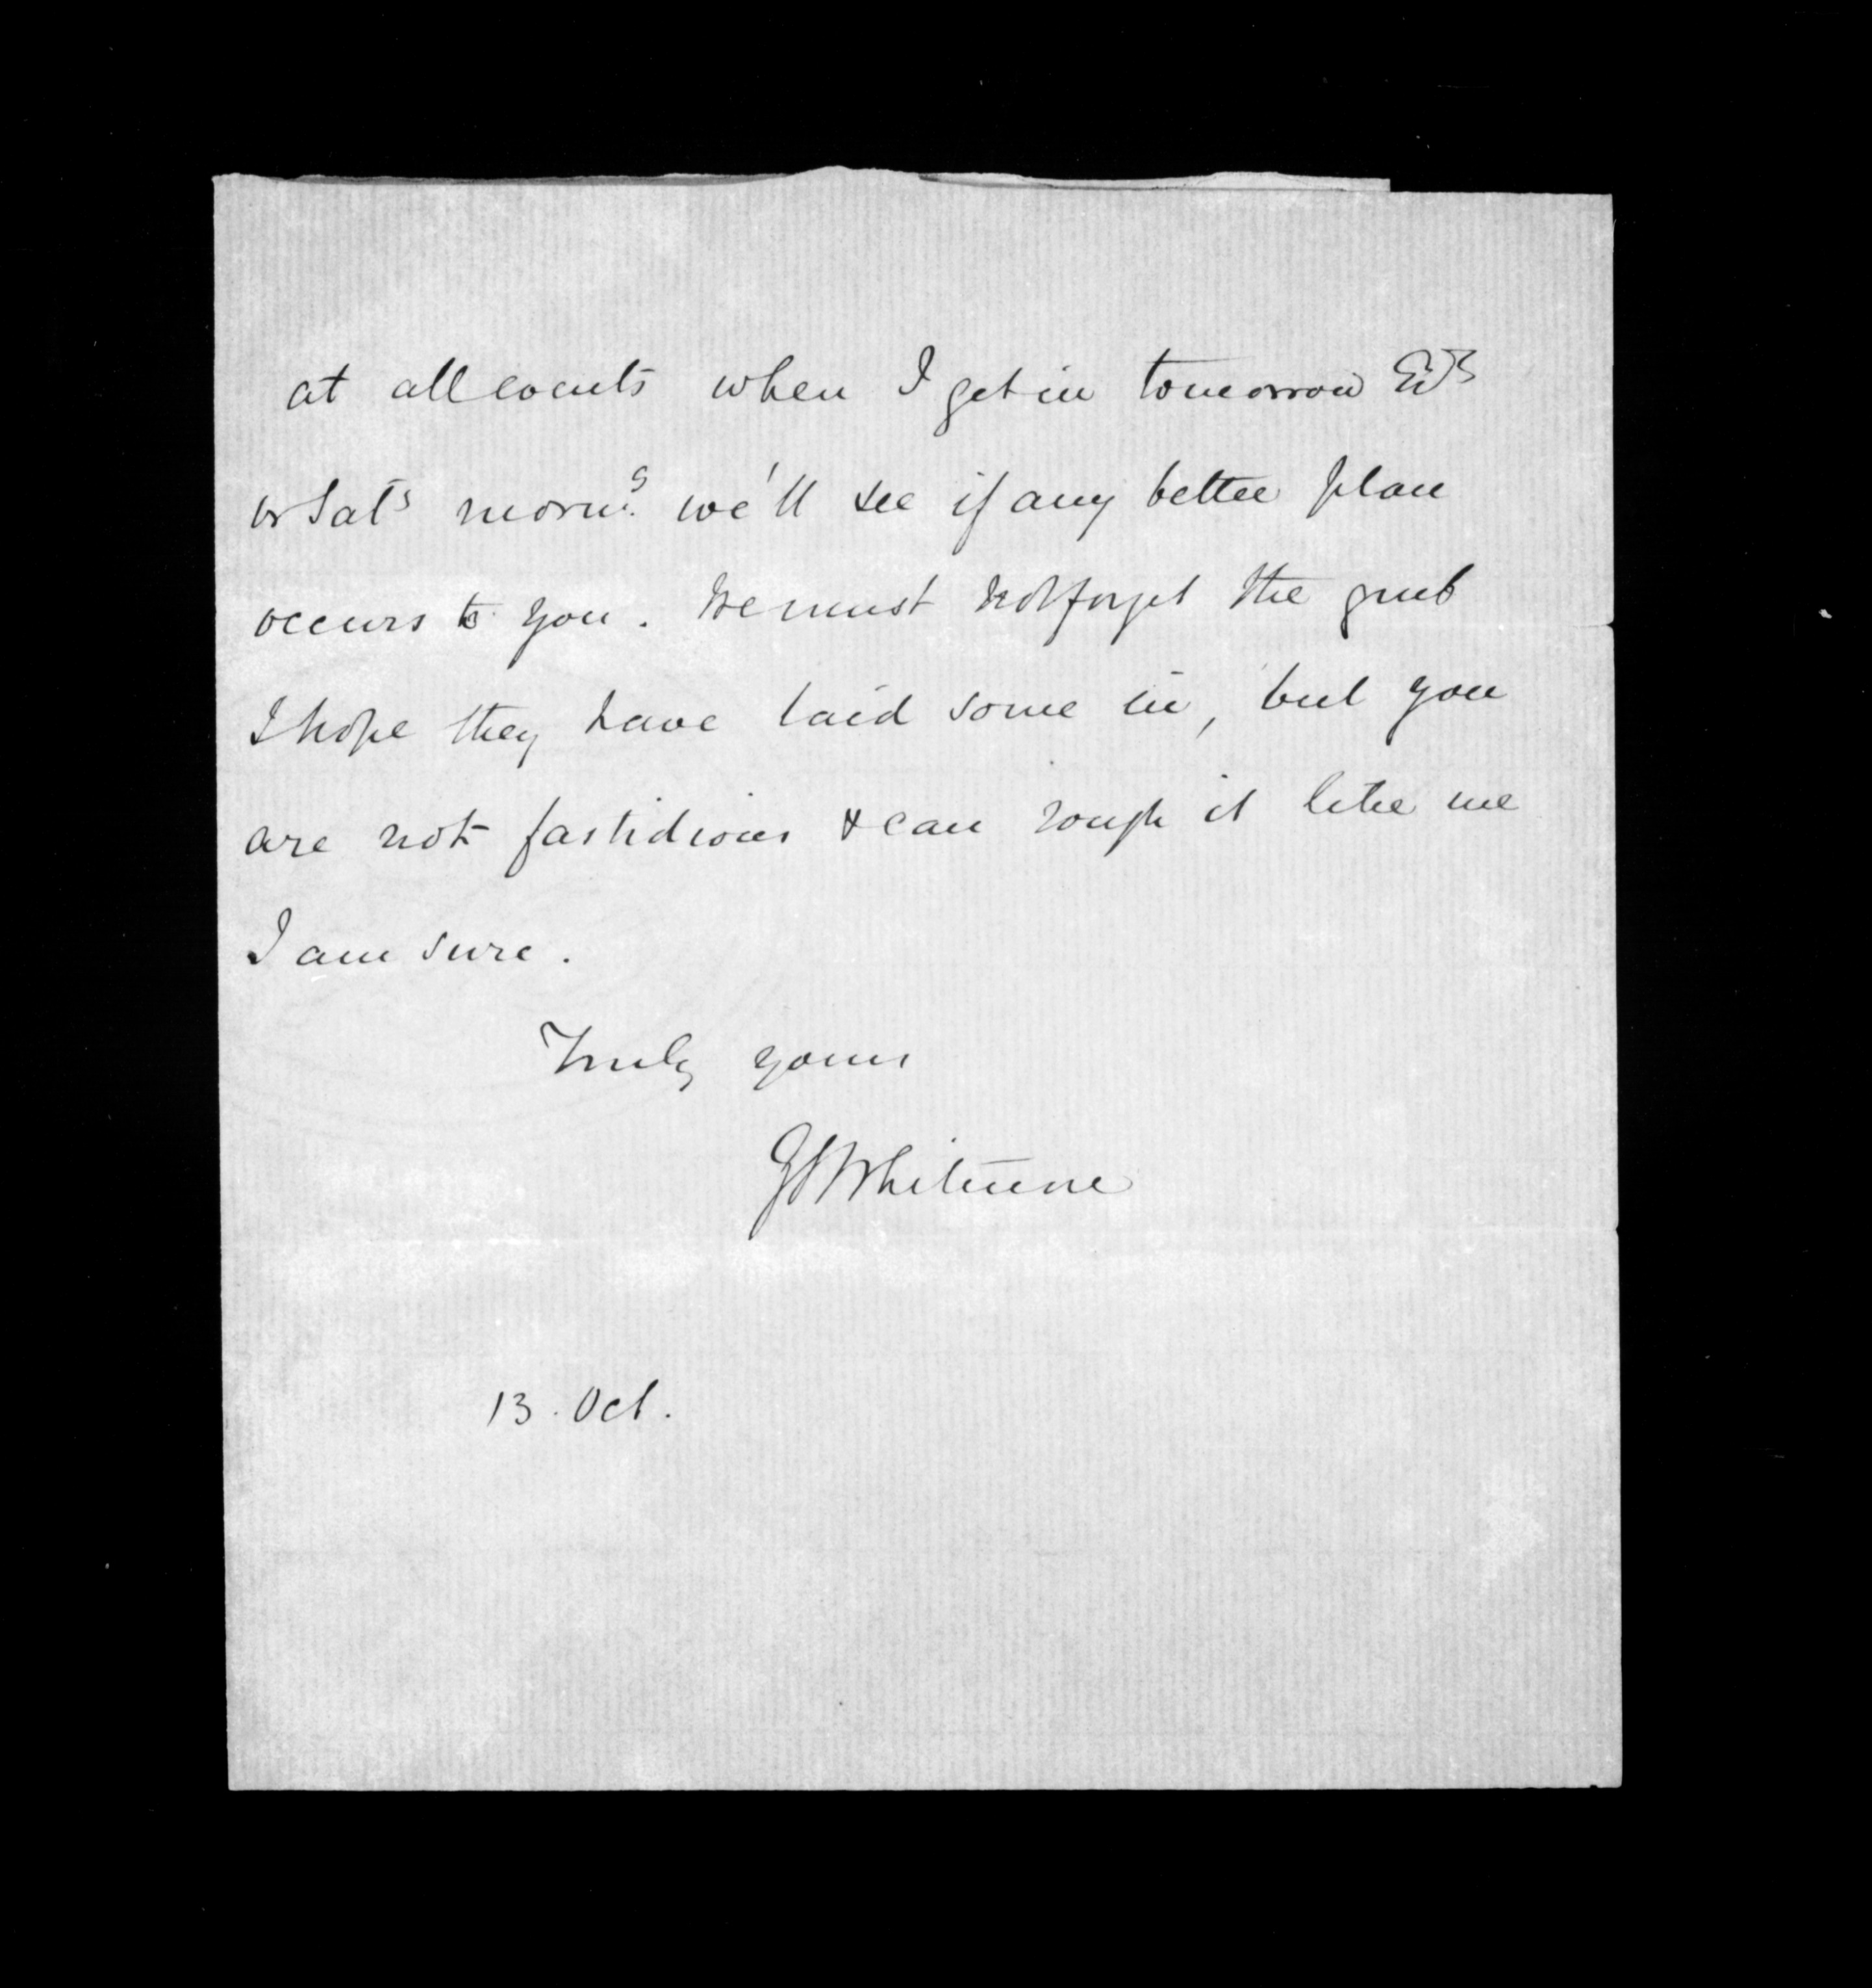 at all events when I get in tomorrow Evg
or Saty morng. we'll see if any better plan
occurs to you. We must not forget the grub
I hope they have laid some in, but you
are not fastidious & can rough it like me
I am sure.
Truly yours
GSWhitmore
13. Oct.